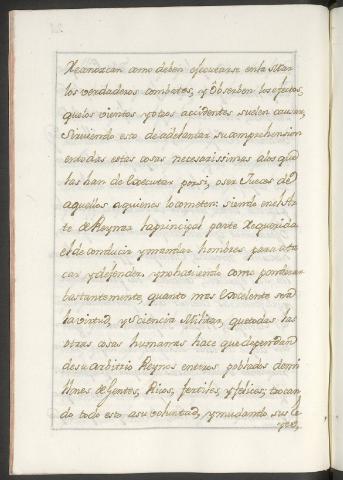 Xeconozcan como deben efecutarse en la Mar
los verdaderos combates, y Observen los efectos,
que los vientos y otros accidentes suelen causar,
Sirviendo esto de adelantar su comprehension
en todas estas cosas necesarissimas a los que
las han de Executar por si, o ser Jueces de
aquellos a quienes lo cometen: siendo en el Ar
te de Reynar la principal parte Xequerida
el de conducir y mandar hombres para ata
car y defender, y no haviendo como ponderar
bastantemente, quanto mas Excelente sea
la virtud, y Sciencia Militar, que todas las
otras cosas humanas hace que dependan
de su arbitrio Reynos enteros poblados de mi
llones de Gentes, Ricos, fertiles, y felices, trocan
do todo esto a su voluntad, y mudando sus Le
yes,